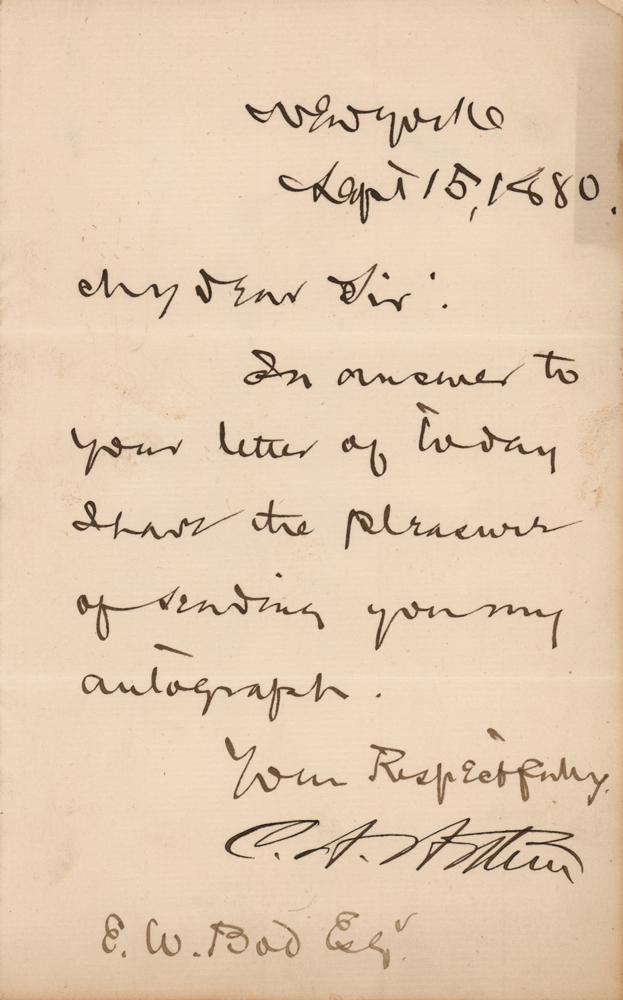 New York
Sept 15, 1880.
My dear Sir:
In answer to
your letter of today
I have the pleasure
of sending you my
autograph.
Your Respectfully
C. A. Arthur
E. W. Bod Esqr